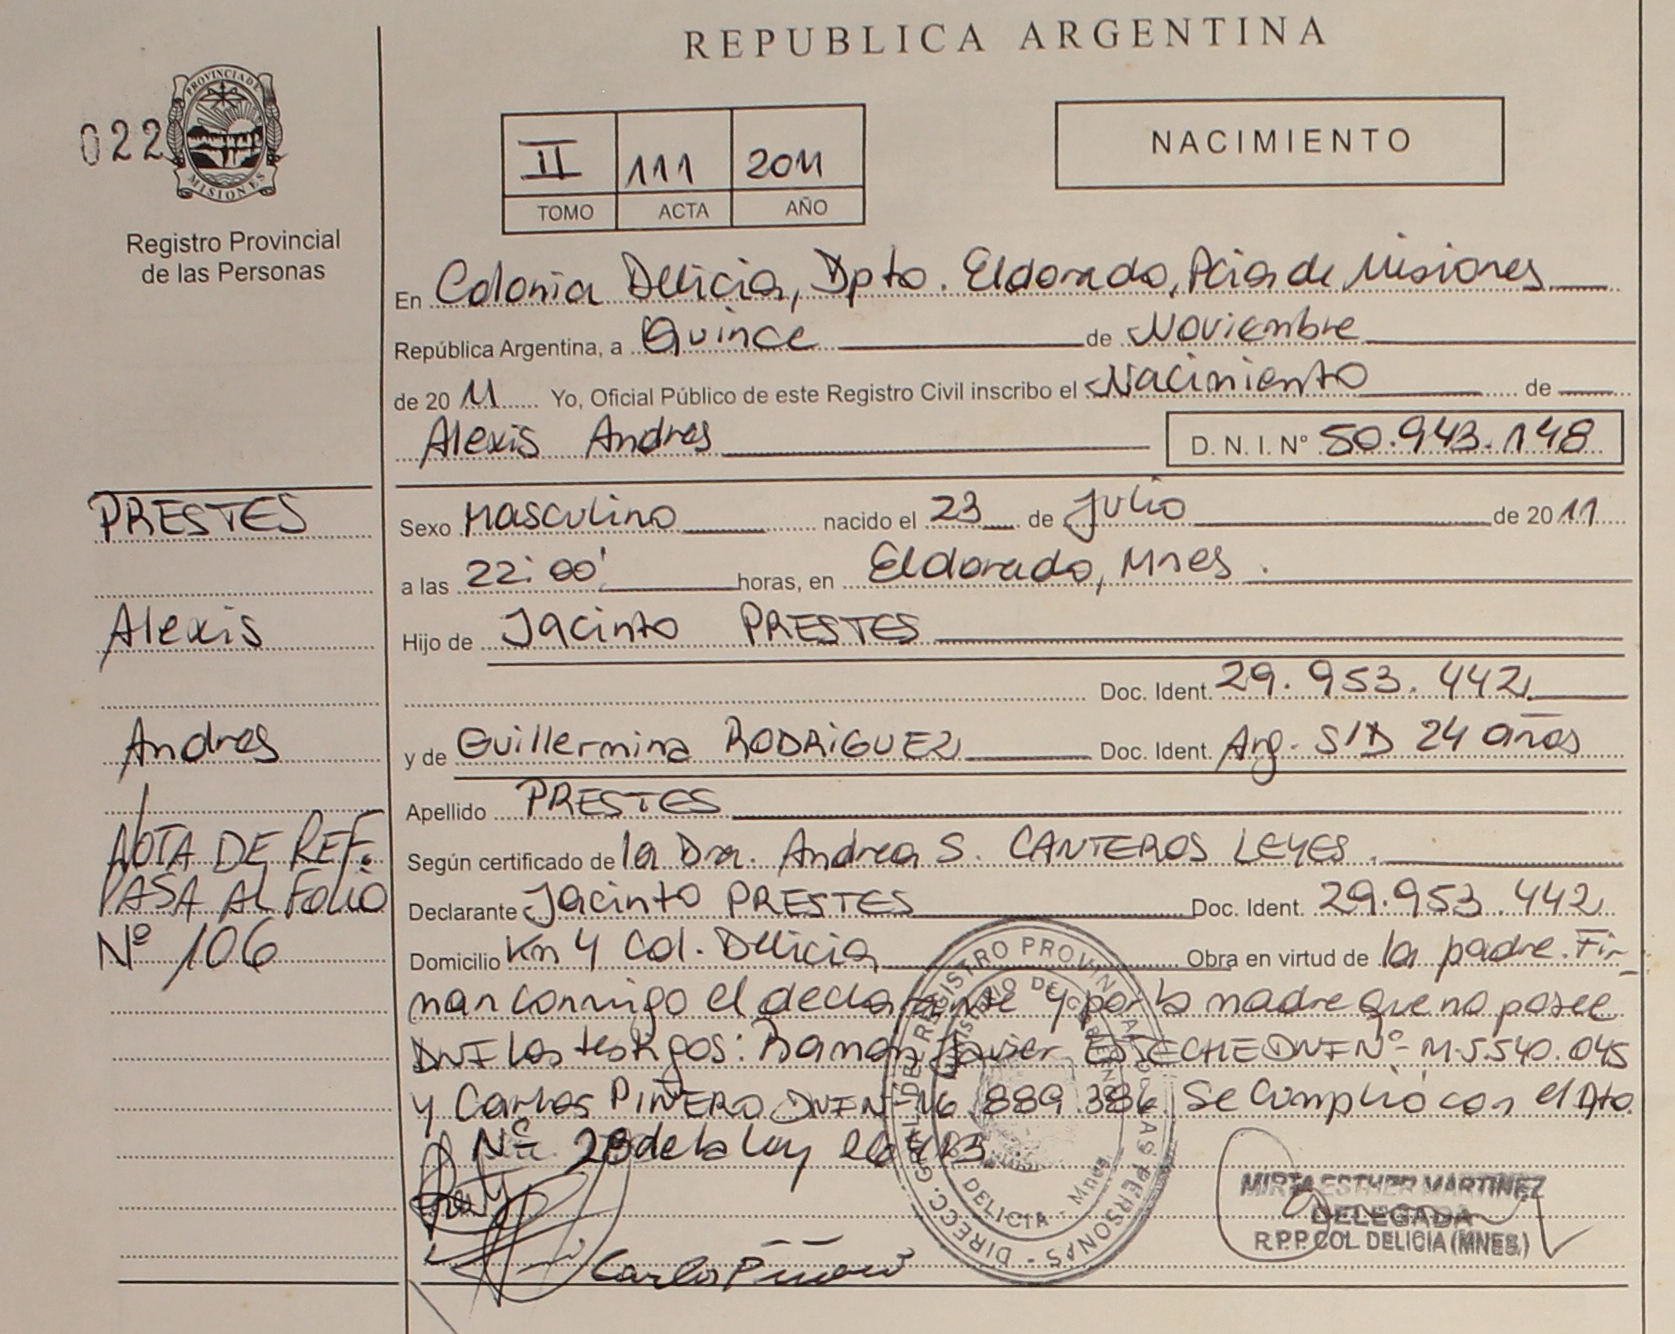 REPUBLICA ARGENTINA
022
PROVINCIA DE
MISIONES
Registro Provincial
de las Personas
II 111 2011
TOMO ACTA AÑO
NACIMIENTO
En Colonia Delicia, Dpto. Eldorado, Pcia de Misiones
República Argentina, a Quince de Noviembre
de 2011 Yo, Oficial Público de este Registro Civil inscribo el Nacimiento de
Alexis Andres D.N.I. Nº 50.943.148
PRESTES
Alexis
Andres
NOTA DE REF.
PASA AL FOLIO
Nº 106
Sexo Masculino nacido el 23 de Julio de 2011
a las 22:00' horas, en Eldorado, Mnes.
Hijo de Jacinto PRESTES
Doc. Ident. 29.953.442
y de Guillermina RODRIGUEZ Doc. Ident. Arg. S/D 24 años
Apellido PRESTES
Según certificado de la Dra. Andrea S. CANTEROS LEYES.
Declarante Jacinto PRESTES Doc. Ident. 29.953.442
Domicilio Km 4 Col. Delicia Obra en virtud de la padre. Fir-
man conmigo el declarante y por la madre que no posee
DNI los testigos: Ramon Javier ESTECHE DNI Nº M.5.540.045
y Carlos PIÑERO DNI Nº 16.889.386 Se Cumplió con el Ato.
Nº 28 de la ley
Carlo
DIRECC. GRAL DEL REGISTRO PROVINCIAL DE LAS PERSONAS
MINISTERIO DE GOBIERNO
DELICIA - Mnes
MIRTA ESTHER MARTINEZ
DELEGADA
R.P.P. COL. DELICIA (MNES.)